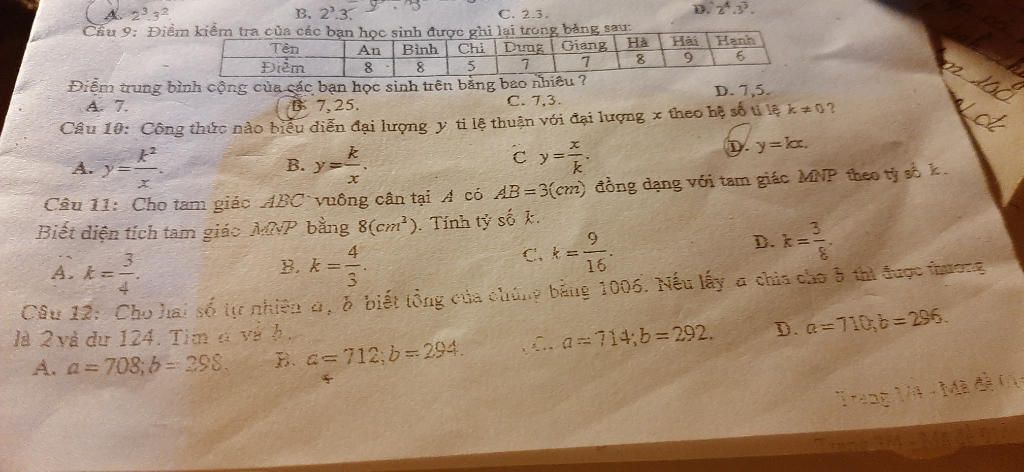 A. 2³.3². B. 2³.3. C. 2.3. D. 2⁴.3³.
Câu 9: Điểm kiểm tra của các bạn học sinh được ghi lại trong bảng sau:
Tên An Bình Chi Dung Giang Hà Hải Hạnh
Điểm 8 8 5 7 7 8 9 6
Điểm trung bình cộng của các bạn học sinh trên bằng bao nhiêu ?
A. 7. B. 7,25. C. 7,3. D. 7,5.
Câu 10: Công thức nào biểu diễn đại lượng y tỉ lệ thuận với đại lượng x theo hệ số tỉ lệ k ≠ 0 ?
A. y = k²/x. B. y = k/x. C y = x/k. D. y = kx.
Câu 11: Cho tam giác ABC vuông cân tại A có AB = 3(cm) đồng dạng với tam giác MNP theo tỷ số k.
Biết diện tích tam giác MNP bằng 8(cm²). Tính tỷ số k.
A. k = 3/4. B. k = 4/3. C. k = 9/16. D. k = 3/8.
Câu 12: Cho hai số tự nhiên a, b biết tổng của chúng bằng 1006. Nếu lấy a chia cho b thì được thương
là 2 và dư 124. Tìm a và b.
A. a = 708; b = 298. B. a = 712; b = 294. C. a = 714; b = 292. D. a = 710; b = 296.
Trang 1/4 - Mã đề